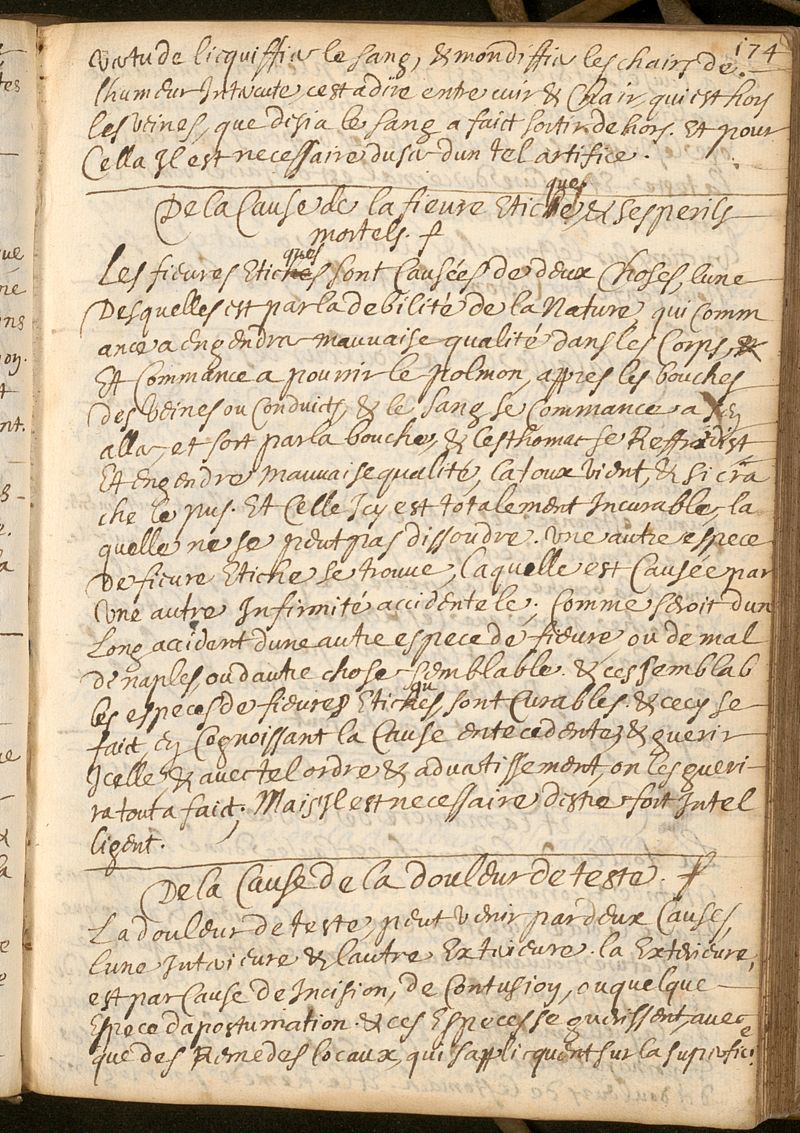 174
vertu de licquiffier le sang, & mondiffier les chairs de
lhumeur Intercute, cest a dire entre cuir & Chair, qui est hors
les veines, que desia le sang a faict sortir dehors. Et pour
Cella Il est necessaire duser dun tel artifice.
De la Cause de la fieure Eticques, & ses perils
mortels.
Les fieures Eticques sont Causées de deux Choses, lune
Desquelles est par la debilité de la Nature, qui Comm
ance a Engendrer mauvaise qualité dans les Corps,
Et Commance a pourrir le polmon, appres les bouches
des veines ou Conduicts, & le sang se Commance a
aller, et sort par la bouche, & lesthomac se Reffroidist
Et engendre mauvaise qualité, la toux vient, & si cra
che le pus. Et Celle Icy est totalement Incurable, la
quelle ne se peut pas dissoudre. Une autre espece
De fieure Etiche se trouve, laquelle est Causée par
Une autre Infirmité accidentele; Comme seroit dun
Long accident dune autre espece de fieure, ou de mal
de naples ou dautre chose semblable. & ces semblab
les especes de fieures Etiques sont Curables. & cecy se
faict, en Cognoissant la Cause entecedente, & guerir
Icelle, & avec tel ordre & advertissement, on les gueri-
ra tout a faict; Mais Il est necessaire destre fort Intel
ligent.
De la Cause de la douleur de teste.
La douleur de teste, peut venir par deux Causes,
lune Interieure & lautre Exterieure. la Exterieure,
est par Cause de Incision, de Contusion, ou quelque
Espece dapostumation. & ces Especes se guerissent, avec
que des Remedes locaux, qui sapplicquent sur la superficie.